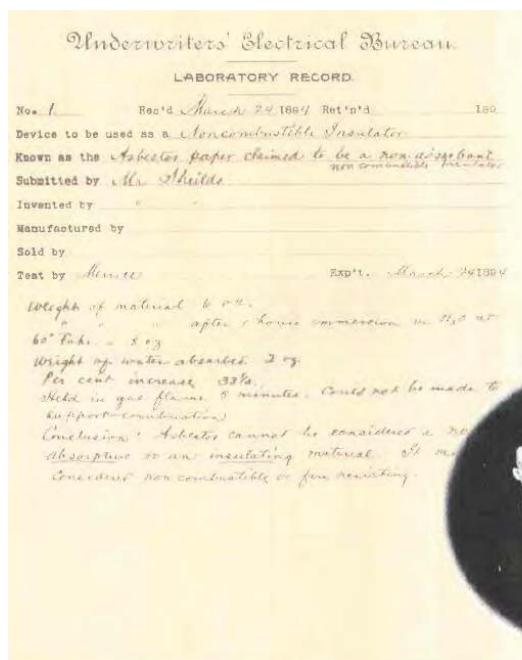 Underwriters' Electrical Bureau.
LABORATORY RECORD.
No. 1. Rec'd March 24 1894 Ret'n'd 189
Device to be used as a Noncombustible Insulator
Known as the Asbestos paper claimed to be a non absorbant
non combustible insulator
Submitted by Mr Shields
Invented by " "
Manufactured by
Sold by
Test by Merrill Exp't. March 24 1894
Weight of material 6 oz.
" " " after 1 hours immersion in H2O at
60° Fahr. = 8 oz
Weight of water absorbed 2 oz.
Per cent increase 33%.
Held in gas flame 5 minutes. Could not be made to
support combustion
Conclusion: Asbestos cannot be considered a
absorptive or an insulating material. It
considered non combustible or fire resisting.